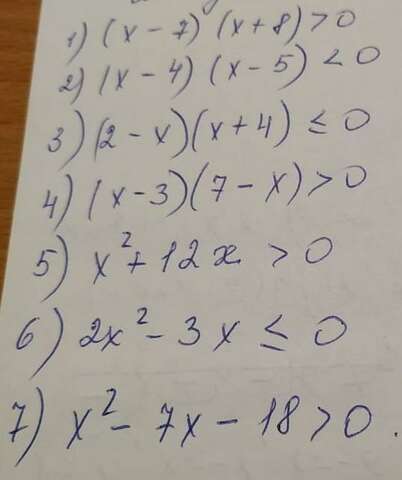 1) (x - 7) (x + 8) > 0
2) (x - 4) (x - 5) < 0
3) (2 - x)(x + 4) ≤ 0
4) (x - 3)(7 - x) > 0
5) x² + 12x > 0
6) 2x² - 3x ≤ 0
7) x² - 7x - 18 > 0.